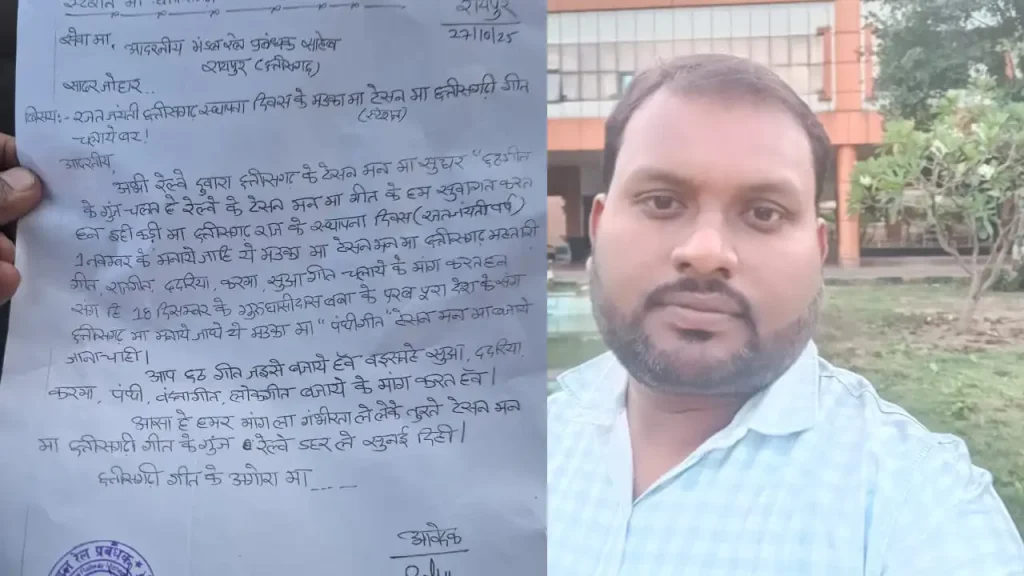 रायपुर
27/10/25
सेवा मा,
आदरणीय मंडल रेल प्रबंधक साहेब
रायपुर (छत्तीसगढ़)
सादर जोहार..
विषय:- रजत जयंती छत्तीसगढ़ स्थापना दिवस के मउका मा टेसन मा छत्तीसगढ़ी गीत
(स्टेशन)
चलाये बर!
आदरणीय,
अभी रेल्वे द्वारा छत्तीसगढ़ के टेसन मन मा सुघर "छठगीत
के गुंज चलत हे रेल्वे के टेसन मन मा गीत के हम सुवागत करत
हन इही कड़ी मा छत्तीसगढ़ राज के स्थापना दिवस (रजत जयंती वर्ष)
1 नवम्बर के मनाये जाहि ये मउका मा टेसन मन मा छत्तीसगढ़ महतारी
गीत, राजगीत, ददरिया, करमा, सुआ गीत चलाये के मांग करत हन
संगे हि 18 दिसम्बर के गुरु घासीदास बबा के परब पूरा देश के संग
छत्तीसगढ़ मा मनाये जाथे ये मउका मा "पंथी गीत" टेसन मन मा बजाये
जाना चाही।
आप छठ गीत जइसे बजाये हव वइसनहे सुआ, ददरिया,
करमा, पंथी, लोकगीत बजाये के मांग करत हन।
आसा हे हमर मांग ला गंभीरता ले लेके तुरते टेसन मन
मा छत्तीसगढ़ी गीत के गुंज रेल्वे डहर ले सुनई दिही।
छत्तीसगढ़ी गीत के अगोरा मा ....
आवेदक
रेल प्रबंधक